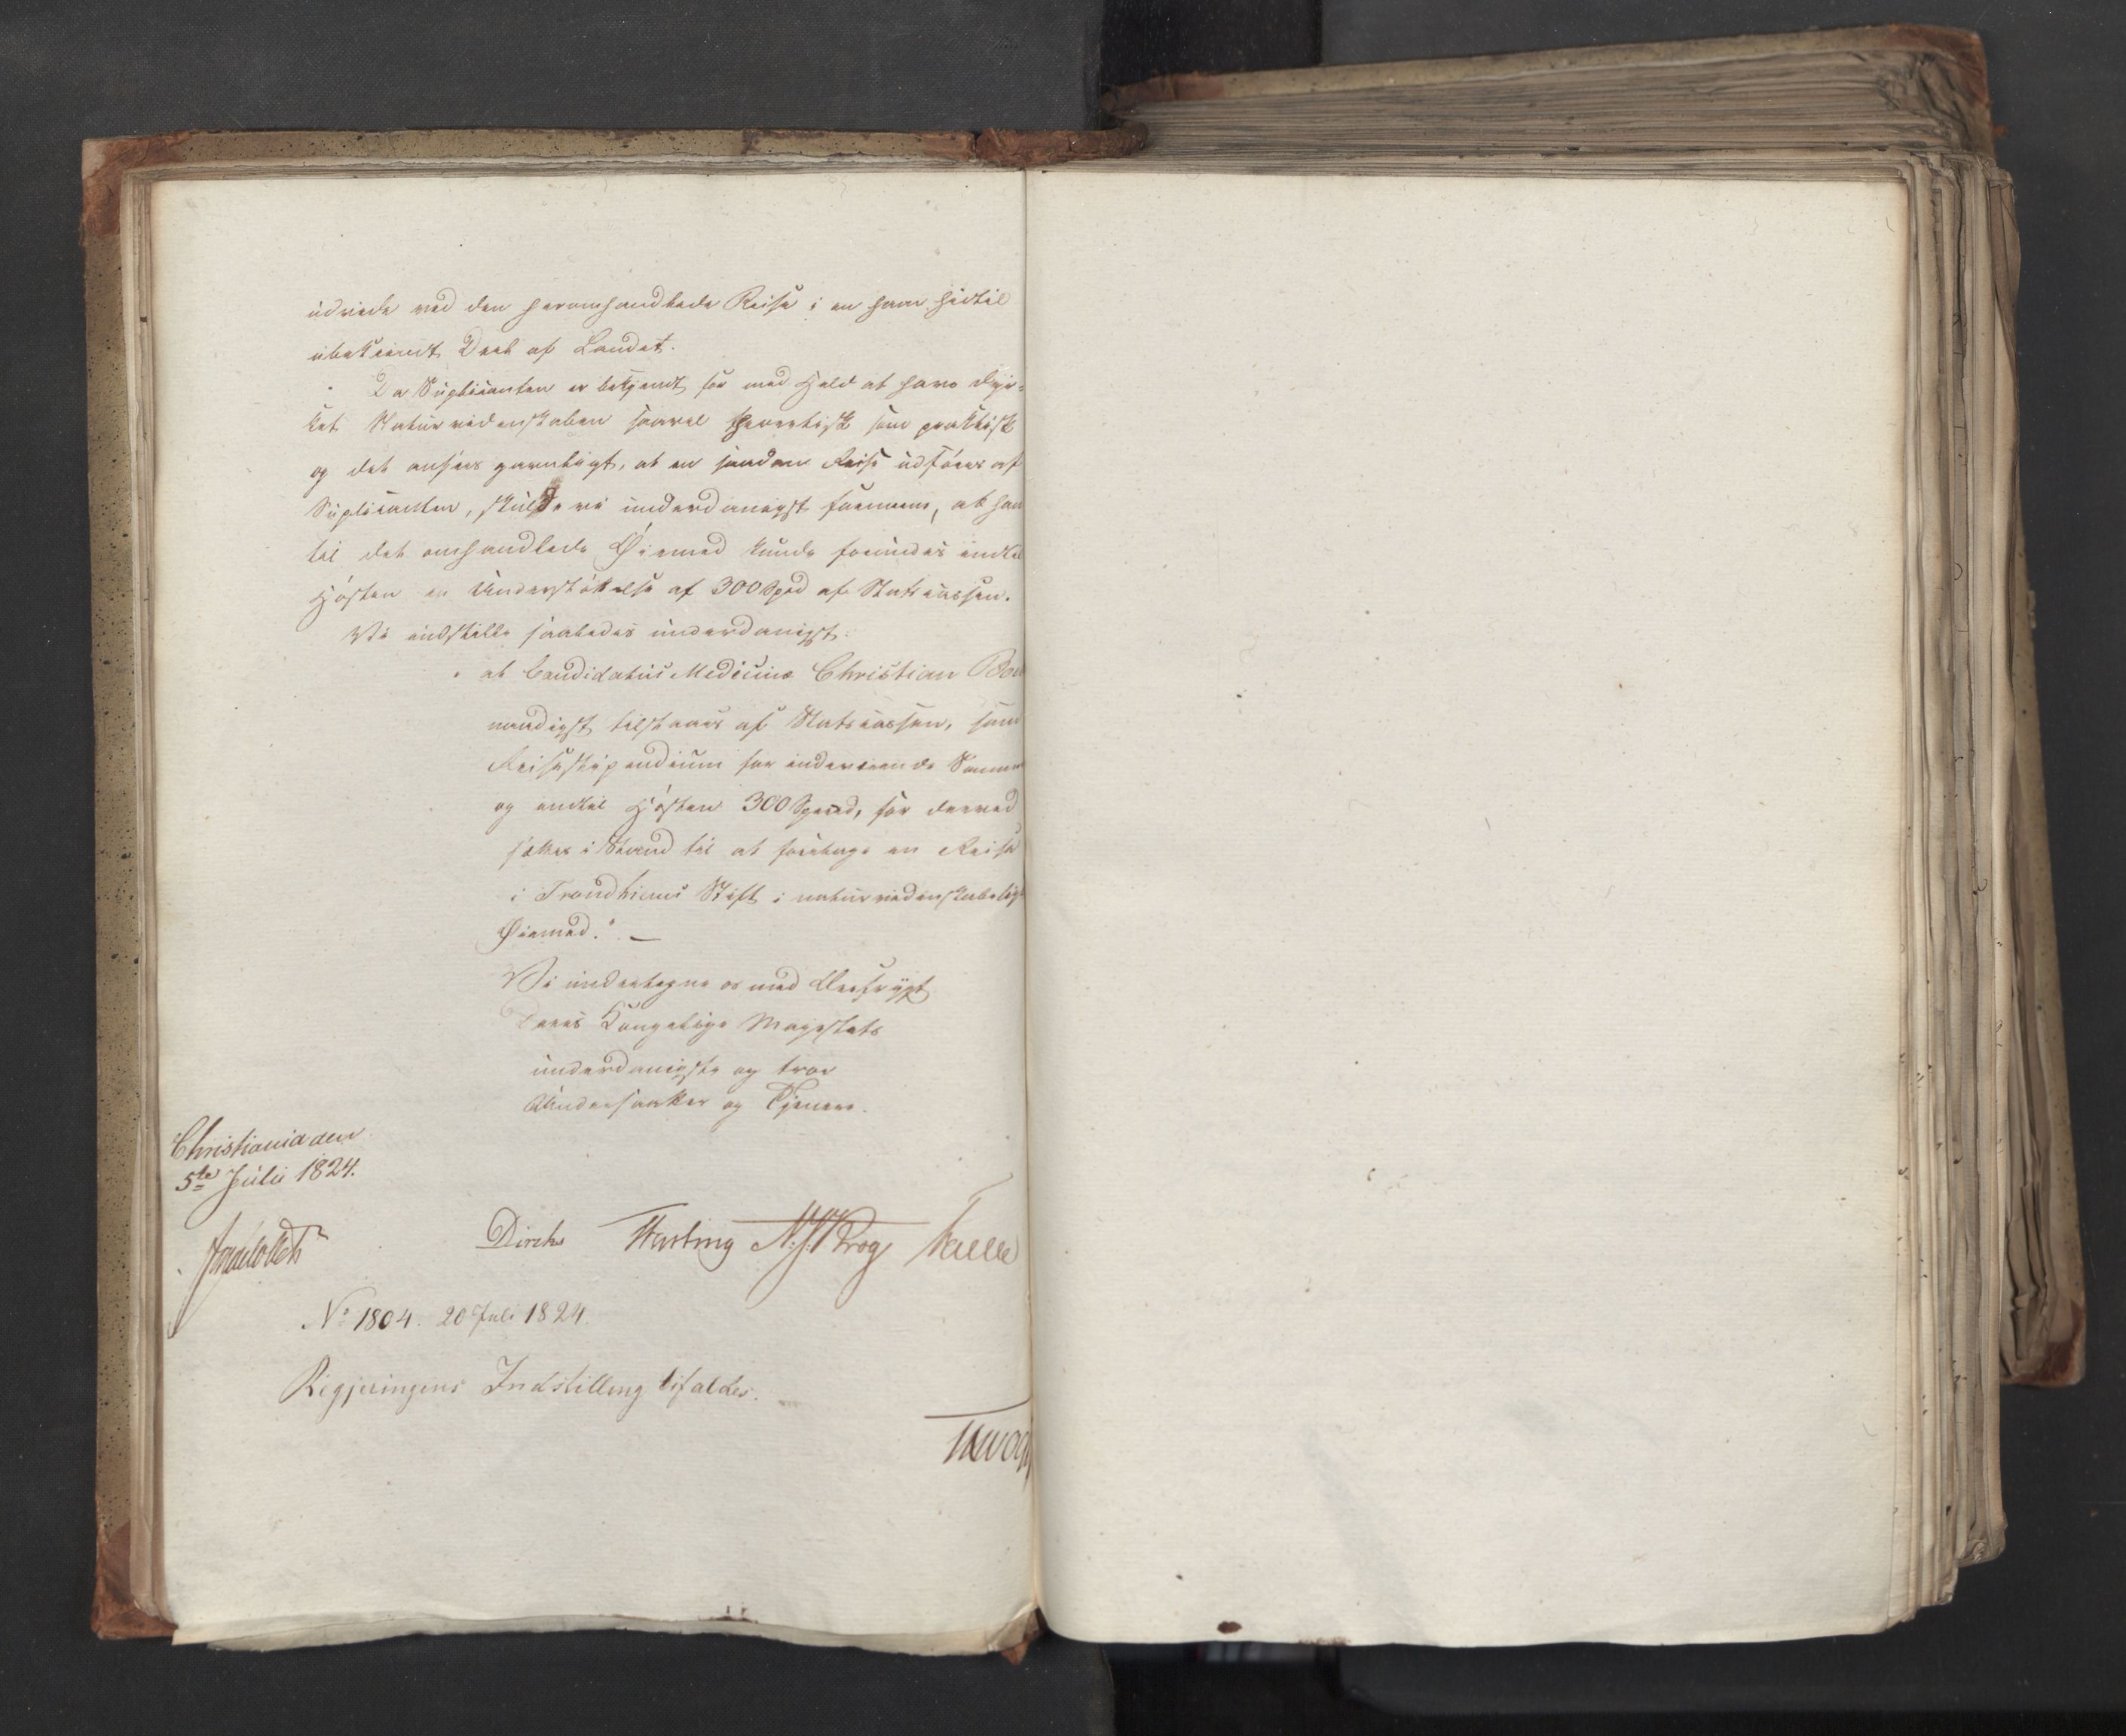 udrede ved den heromhandlede Reise i en saa hidtil
ubekiendt Deel af Landet.
Da Suplicanten er bekjendt for med Held at have dyr=
ket Naturvidenskaben saavel theoretisk som praktisk
og det ansees gavnligt, at en saadan Reise udføres af
Suplicanten, skulde vi underdanigst formene, at han
til det omhandlede Øiemed kunde forundes indtil
Høsten en Understøttelse af 300 Spd af Statscassen.
Vi indstille saaledes underdanigst:
at Candidatus Medicinæ Christian Boe
naadigst tilstaaes af Statscassen, som
Reisestipendium for indeværende Sommer
og indtil Høsten 300 Specd, for derved
sættes i Stand til at foretage en Reise
i Trondhiems Stift i naturvidenskabeligt
Øiemed." —
Vi undertegne os med Ærefrygt
Deres Kongelige Majestæts
underdanigste og troe
Undersaatter og Tjenere.
Christiania den
5te Julii 1824.
Jonas Collett
Diriks Hartvig N. J. Krog Treschow
No 1804. 20 Juli 1824.
Regjeringens Indstilling bifaldes.